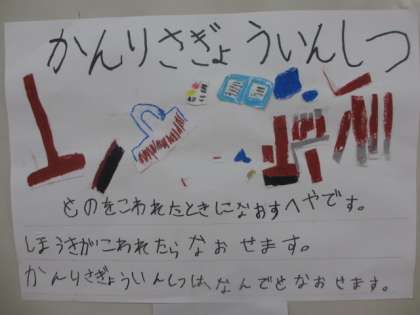 かんりさぎょういんしつ
ものをこわれたときになおすへやです。
しほうきがこわれたらなおせます。
かんりさぎょういんしつは、なんでもなおせます。